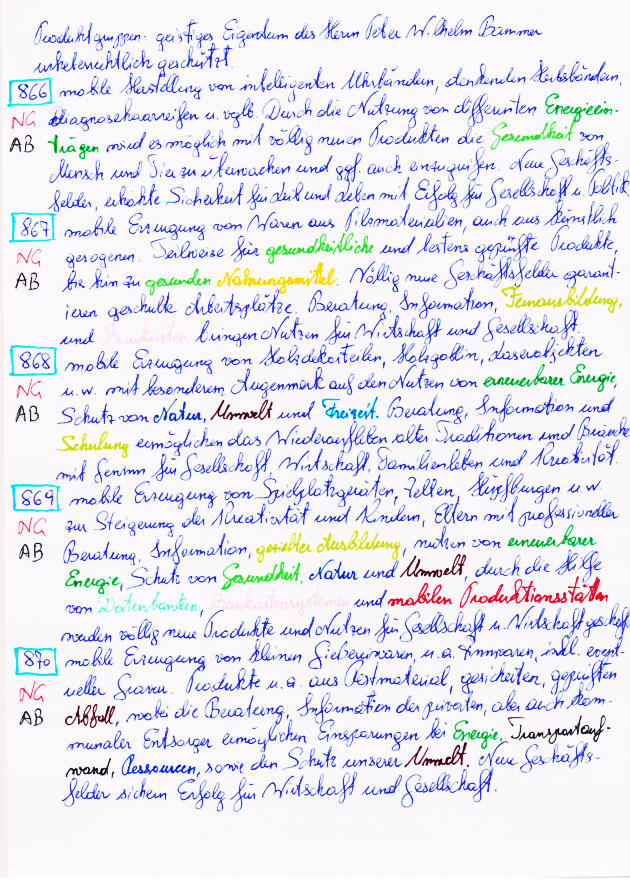 Produktgruppen- geistiges Eigentum des Herrn Peter Wilhelm Bämmer
urheberrechtlich geschützt.
866 mobile Herstellung von intelligenten Uhrbändern, denkenden Herbsbändern,
NG diagnosehaarreifen u. vglb. Durch die Nutzung von differenten Energieein-
AB trägen wird es möglich mit völlig neuen Produkten die Gesundheit von
Mensch und Tier zu überwachen und ggf. auch einzugreifen. Neue Geschäfts-
felder, erhöhte Sicherheit für Leib und Leben mit Erfolg für Gesellschaft u. Politik.
867 mobile Erzeugung von Waren aus Pilzmaterialien, auch aus künstlich
NG gezogenen. Teilweise für gesundheitliche und bestens geprüfte Produkte,
AB bis hin zu gesunden Nahrungsmittel. Völlig neue Geschäftsfelder garant-
ieren geschulte Arbeitsplätze. Beratung, Information, Fernausbildung,
und Baukasten bringen Nutzen für Wirtschaft und Gesellschaft.
868 mobile Erzeugung von Holzdekorteilen, Laserobjekten
NG u.w. mit besonderem Augenmerk auf den Nutzen von erneuerbarer Energie,
AB Schutz von Natur, Umwelt und Freizeit. Beratung, Information und
Schulung ermöglichen das Wiederaufleben alter Traditionen und Bräuche
mit Gewinn für Gesellschaft, Wirtschaft, Familienleben und Kreativität.
869 mobile Erzeugung von Spielplatzgeräten, Zelten, Hüpfburgen u.w.
NG zur Steigerung der Kreativität und Kindern, Eltern mit professioneller
AB Beratung, Information, gezielter Ausbildung, nutzen von erneuerbarer
Energie, Schutz von Gesundheit, Natur und Umwelt, durch die Hilfe
von Datenbanken, Baukastensystemen und mobilen Produktionsstätten
werden völlig neue Produkte und Nutzen für Gesellschaft u. Wirtschaft geschaff
870 mobile Erzeugung von kleinen Giessereiwaren, u.a. Zinnwaren, inkl. event-
NG ueller Gravur. Produkte u.a. aus Restmaterial, gesicherten, geprüften
AB Abfall, wobei die Beratung, Information der privaten, aber auch kom-
munaler Entsorger ermöglichen Einsparungen bei Energie, Transportauf-
wand, Ressourcen, sowie den Schutz unserer Umwelt. Neue Geschäfts-
felder sichern Erfolg für Wirtschaft und Gesellschaft.